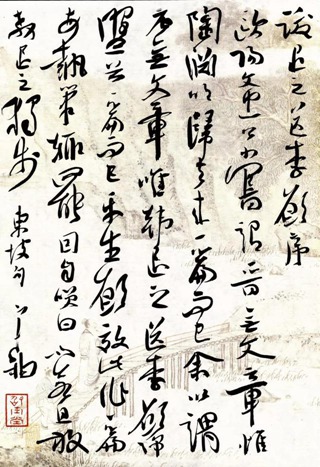 跋退之送李愿序
歐陽文忠公嘗謂晉無文章惟
陶淵明歸去來一篇而已余以謂
唐無文章唯韓退之送李愿歸
盤谷一篇而已平生願效此作一篇
每執筆輒罷因自笑曰不若且放
教退之獨步 東坡句